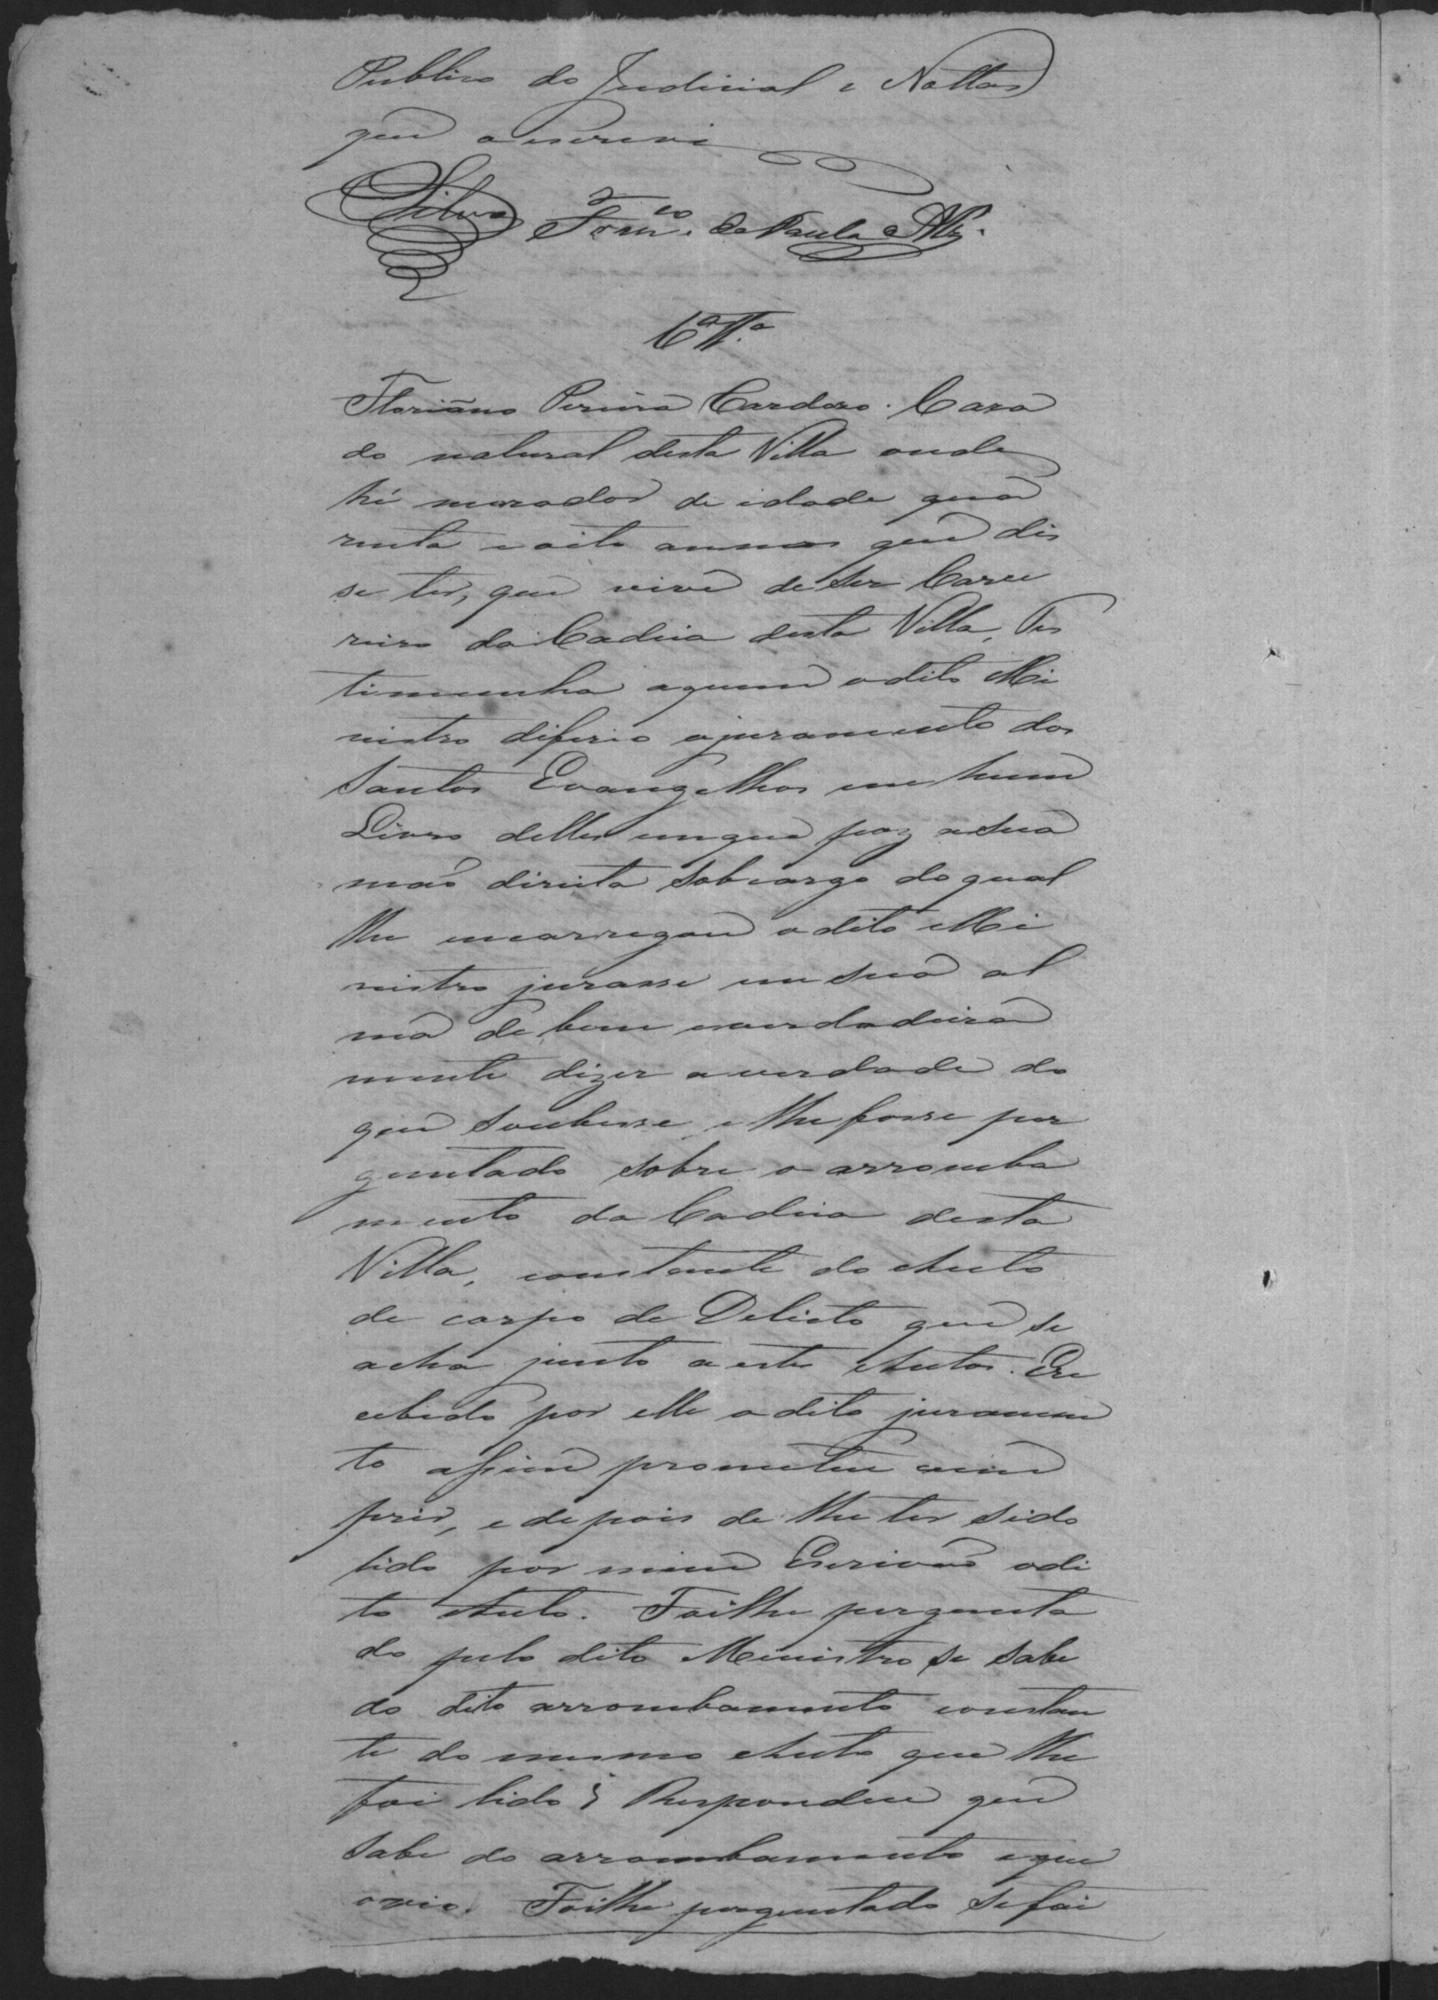 Publico do Judicial e Nottas
que o escrevi
Silva Franco. de Paula
6ª Tª.
Floriano Pereira Cardozo. Caza
do natural desta Villa onde
hé morador de idade qua
renta e oito annos que dis
se ter, que vive de ser Carce
reiro da Cadeia desta Villa, Tes
timunha aquem odito Mi
nistro diferio ojuramento dos
Santos Evangelhos em hum
Livro delles emque poz asua
maõ direita sobcargo do qual
lhe encarregou odito Mi
nistro jurasse em sua al
ma de bem everdadeira
mente dizer averdade do
que soubesse, e lhe fosse per
guntado sobre o arromba
mento da Cadeia desta
Villa, constante do Auto
de corpo de Delicto que se
acha junto a estes Autos. Ere
cebido por elle odito juramen
to assim prometeu cum
prir, e depois de lhe ter sido
lido por mim Escrivaõ odi
to Auto. Foilhe pergunta
do pelo dito Ministro se sabe
do dito arrombamento constan
te do mesmo Auto que lhe
foi lido? Respondeu que
sabe do arrombamento eque
ovio. Foilhe perguntado sefoi